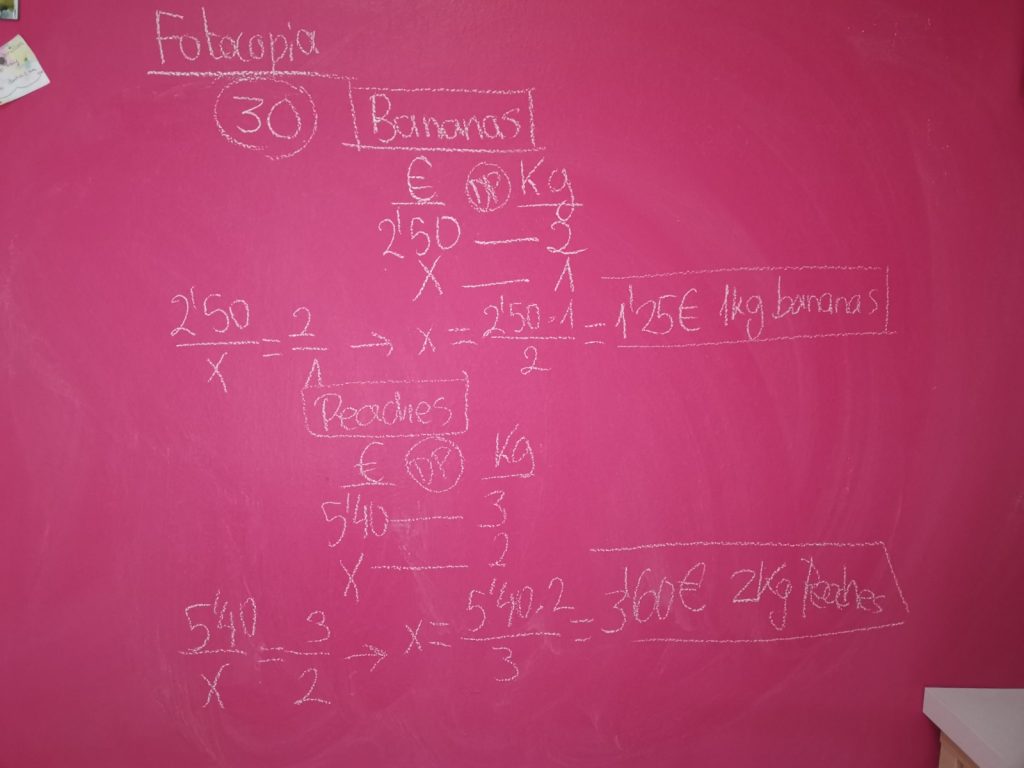 Fotocopia
30 Bananas
€ DP Kg
2'50 — 2
X — 1
2'50/X = 2/1 → x = 2'50·1/2 = 1'25€ 1kg bananas
Peaches
€ DP Kg
5'40 — 3
X — 2
5'40/X = 3/2 → x = 5'40·2/3 = 3'60€ 2Kg Peaches